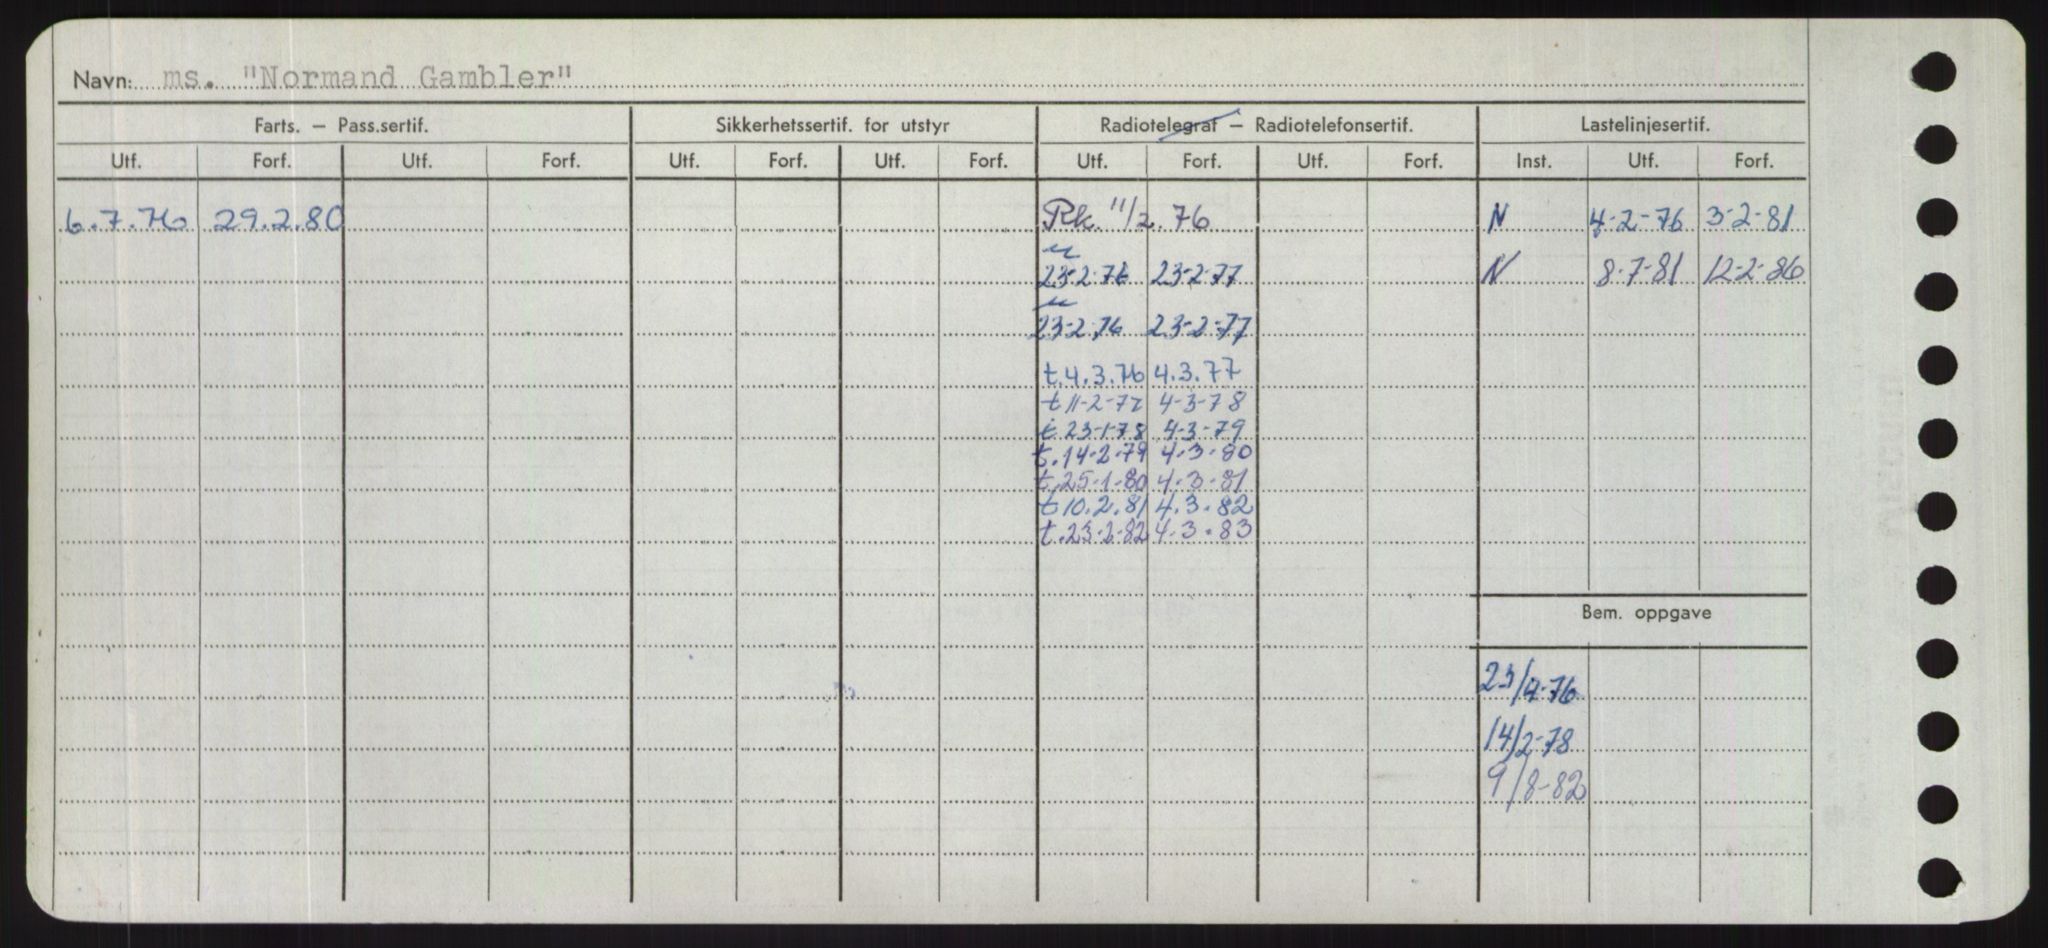 Navn: ms. "Normand Gambler"
Farts. – Pass.sertif. Sikkerhetssertif. for utstyr Radiotelegraf – Radiotelefonsertif. Lastelinjesertif.
Utf. Forf. Utf. Forf. Utf. Forf. Utf. Forf. Utf. Forf. Utf. Forf. Inst. Utf. Forf.
6.7.76 29.2.80 Rk. 11/2.76 N 4-2-76 3-2-81
23-2-76 23-2-77 N 8-7-81 12-2-86
23-2-76 23-2-77
t.4.3.76 4.3.77
t 11-2-77 4-3-78
t 23-1-78 4-3-79
t.14-2-79 4-3-80
t.25-1-80 4-3-81
t 10.2.81 4.3.82
t.23-2-82 4-3-83
Bem. oppgave
23/4-76
14/2-78
9/8-82